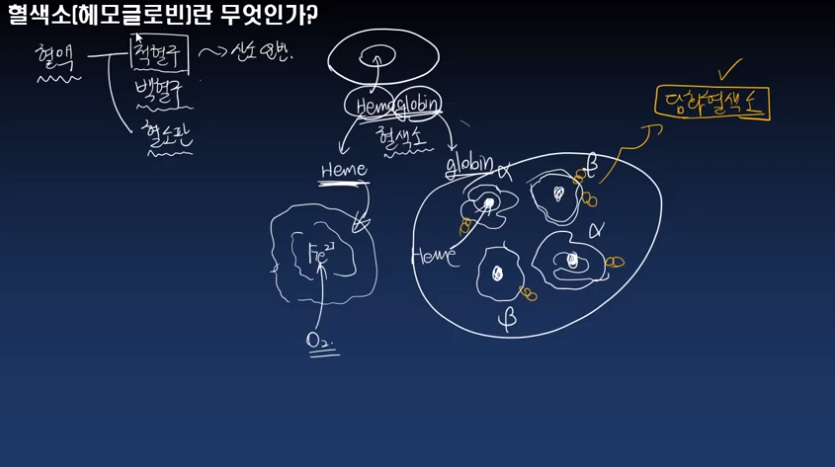 혈색소(헤모글로빈)란 무엇인가?
혈액
적혈구
산소 운반.
백혈구
혈소판
Hemoglobin
혈색소
Heme
globin
Fe²⁺
O₂.
α
β
Heme
α
β
당화혈색소